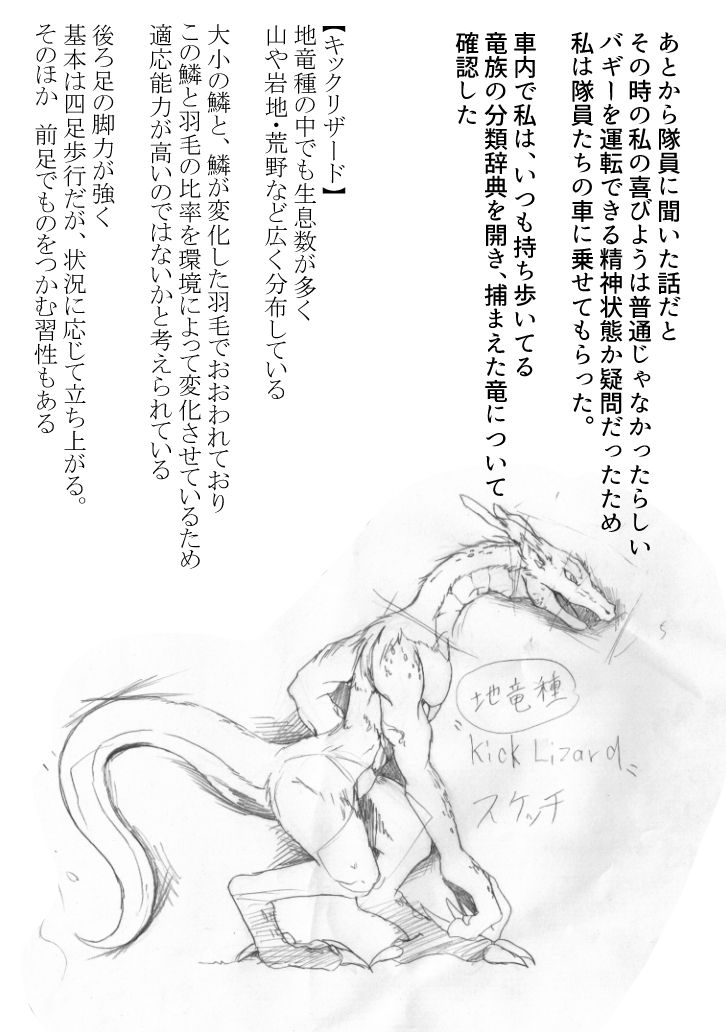 あとから隊員に聞いた話だと
その時の私の喜びようは普通じゃなかったらしい
バギーを運転できる精神状態か疑問だったため
私は隊員たちの車に乗せてもらった。
車内で私は、いつも持ち歩いてる
竜族の分類辞典を開き、捕まえた竜について
確認した
【キックリザード】
地竜種の中でも生息数が多く
山や岩地・荒野など広く分布している
大小の鱗と、鱗が変化した羽毛でおおわれており
この鱗と羽毛の比率を環境によって変化させているため
適応能力が高いのではないかと考えられている
後ろ足の脚力が強く
基本は四足歩行だが、状況に応じて立ち上がる。
そのほか　前足でものをつかむ習性もある
地竜種
"Kick Lizard"
スケッチ